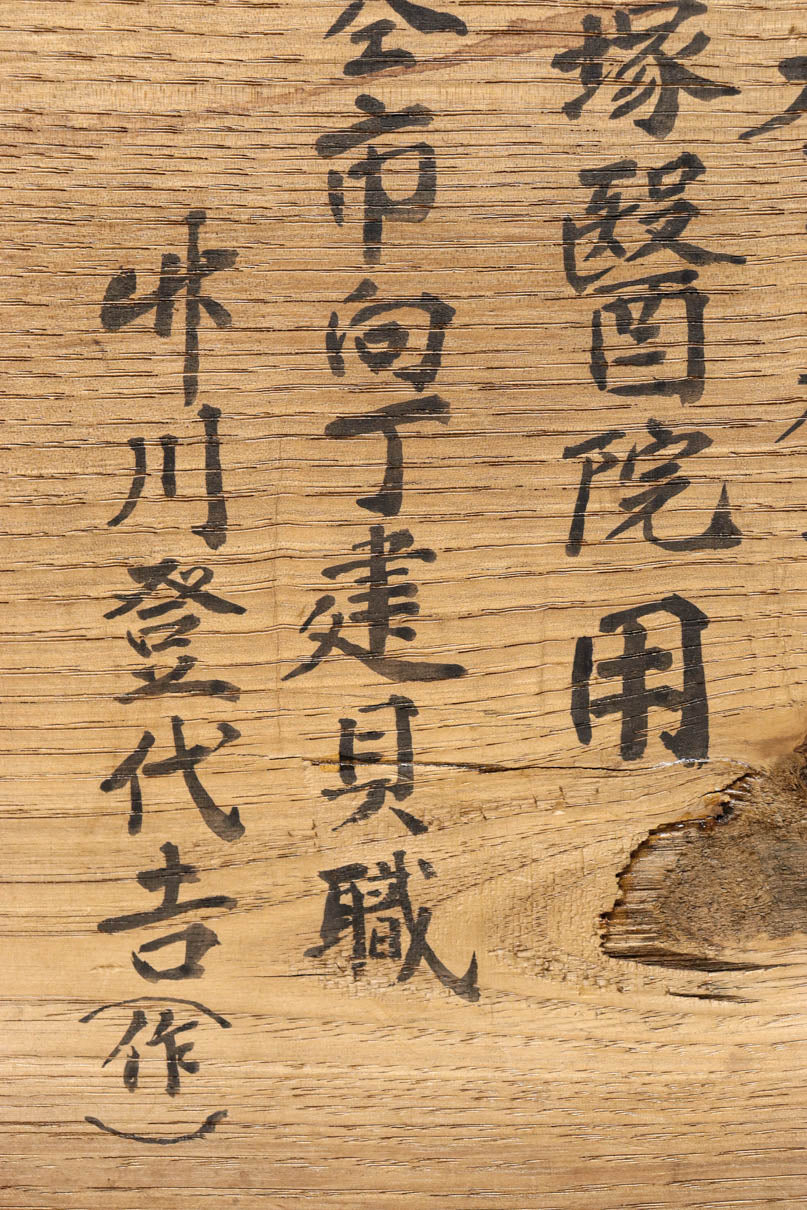 塚醫院用
仝市向丁建具職
川登代吉(作)